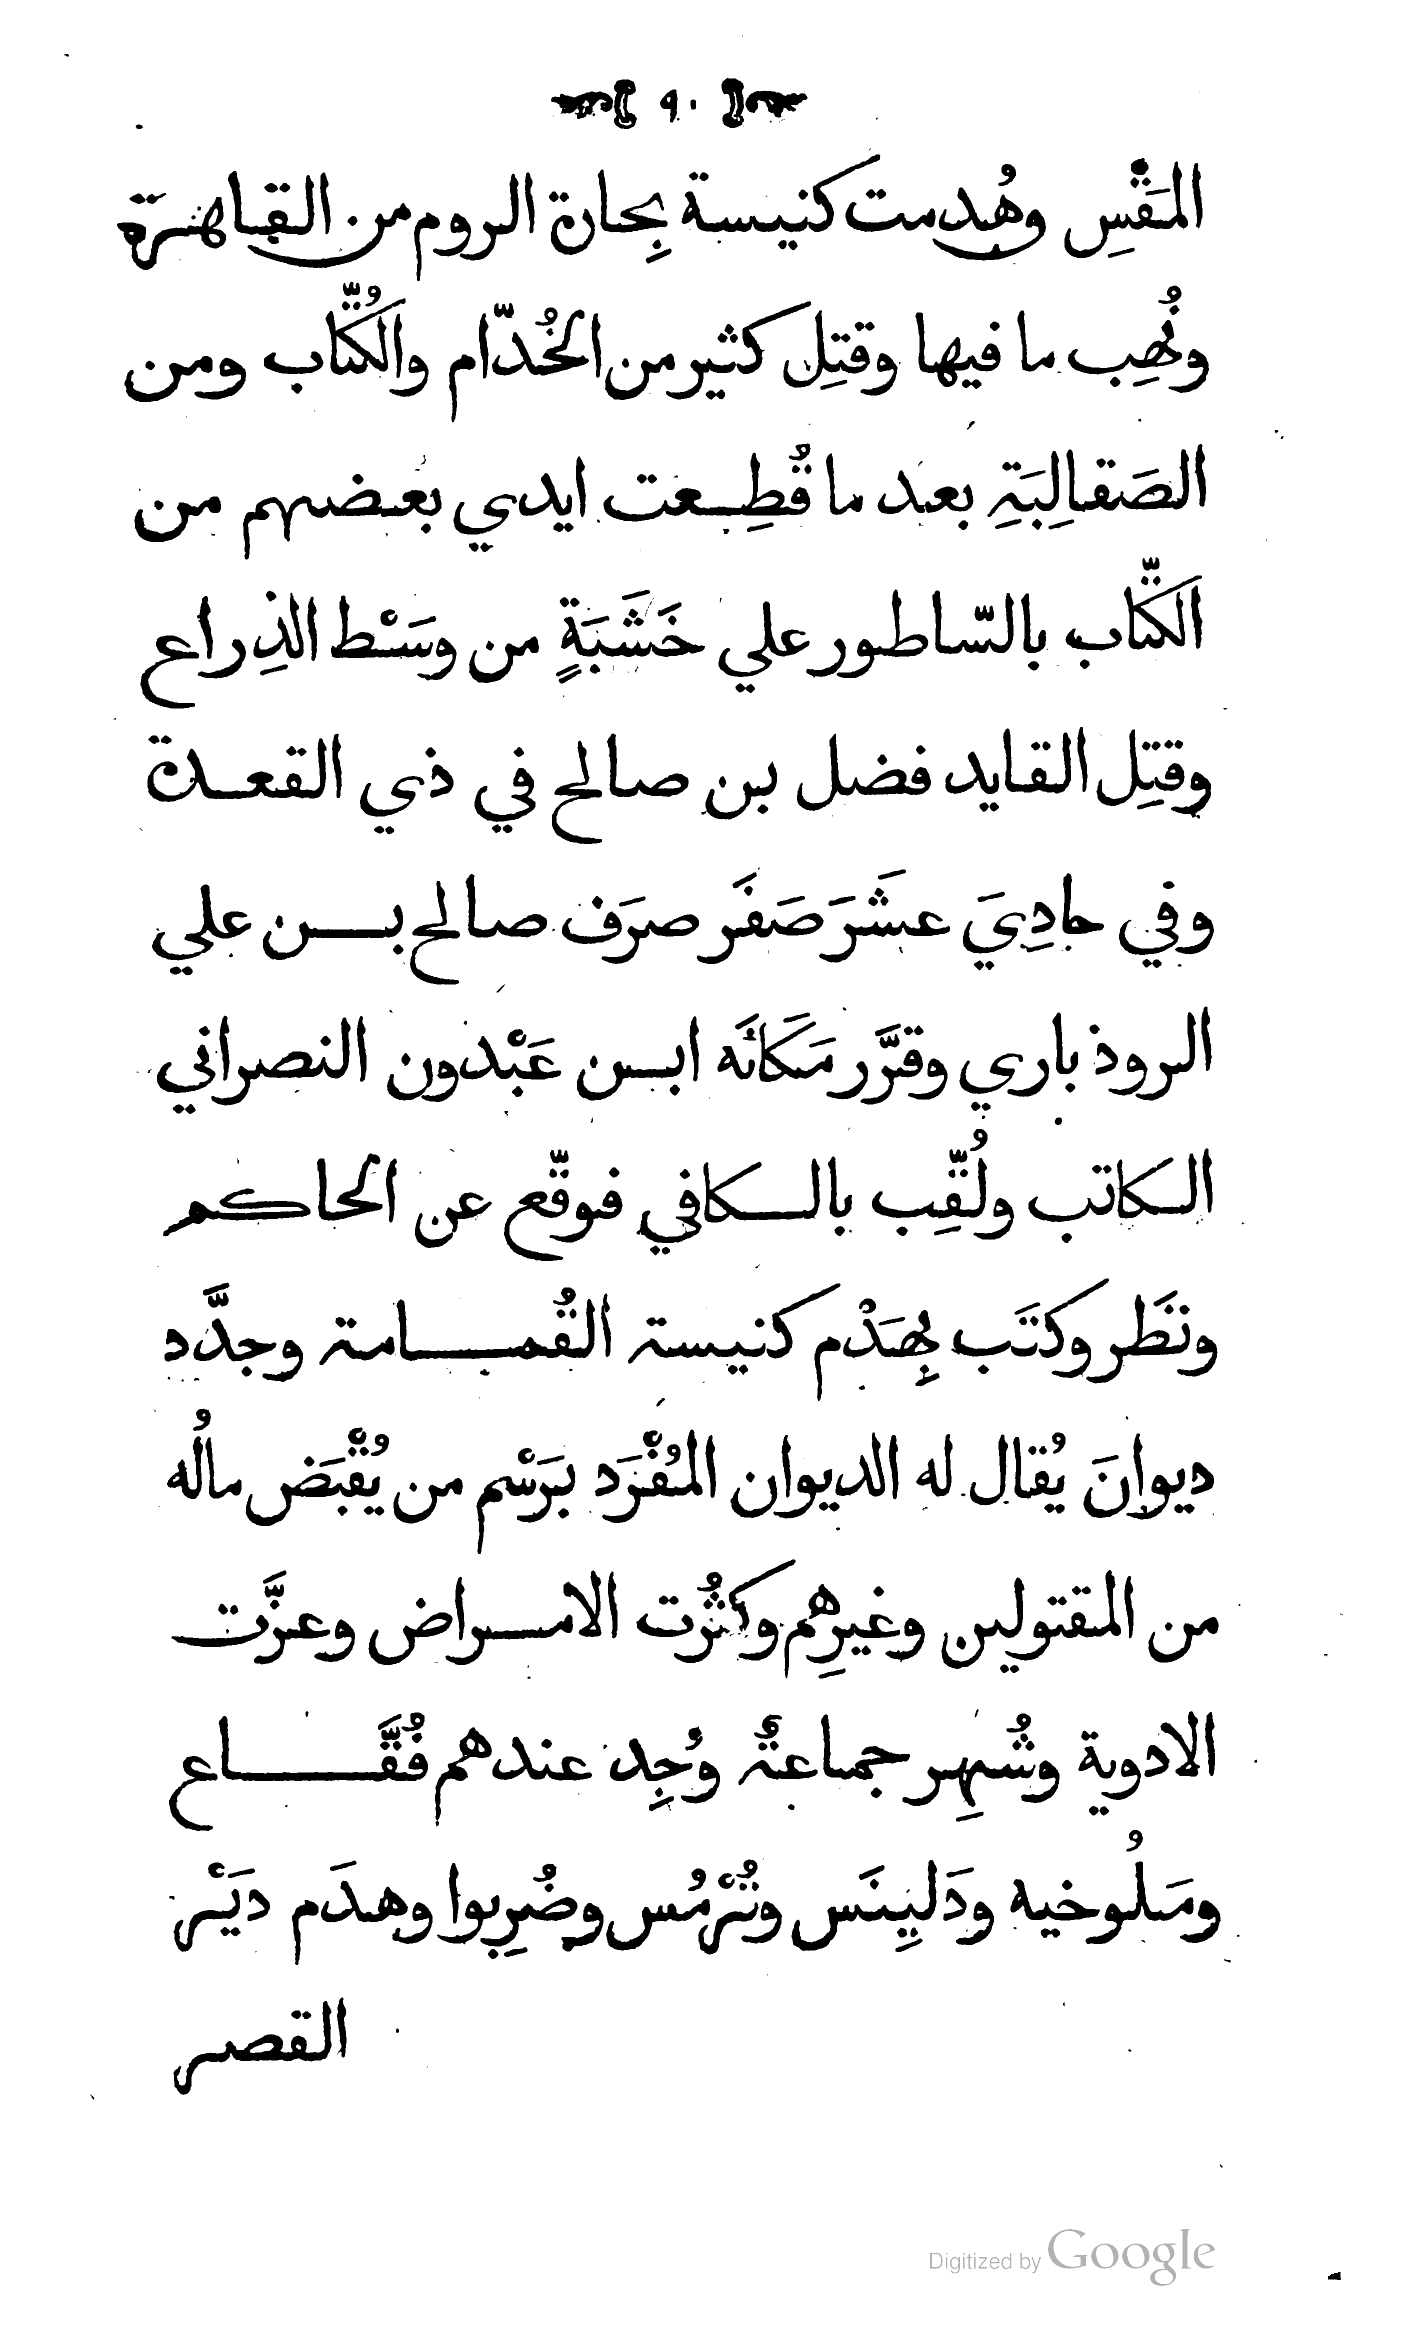 ٩٠
المَقْسِ وهُدمت كنيسة بِحارة الروم من القاهرة
ونُهِب ما فيها وقتِل كثير من الخُدّام والكُتّاب ومن
الصَقالِبَةِ بعد ما قُطِعت ايدي بعضهم من
الكتّاب بالسّاطور علي خَشَبَةٍ من وسَطْ الذِراع
وقتِل القايد فضل بن صالح في ذي القعدة
وفي حادِيَ عشَرَ صَفَر صرَف صالح بن علي
الروذباري وقرَّر مَكانَه ابن عَبْدون النصراني
الكاتب ولُقّبِ بالكافي فوقّع عن الحاكم
ونظَر وكتَب بِهَدْم كنيسة القُمامة وجدَّد
ديوانَ يُقال له الديوان المُفْرَد برَسْم من يُقْبَض مالُه
من المقتولين وغيرِهم وكثُرت الامراض وعزَّت
الادوية وشُهِر جماعةٌ وُجِد عندهم فُقَّاع
ومَلُوخيه ودَلِينَس وتُرْمُس وضُرِبوا وهدَم دَيْر
القصر
Digitized by Google